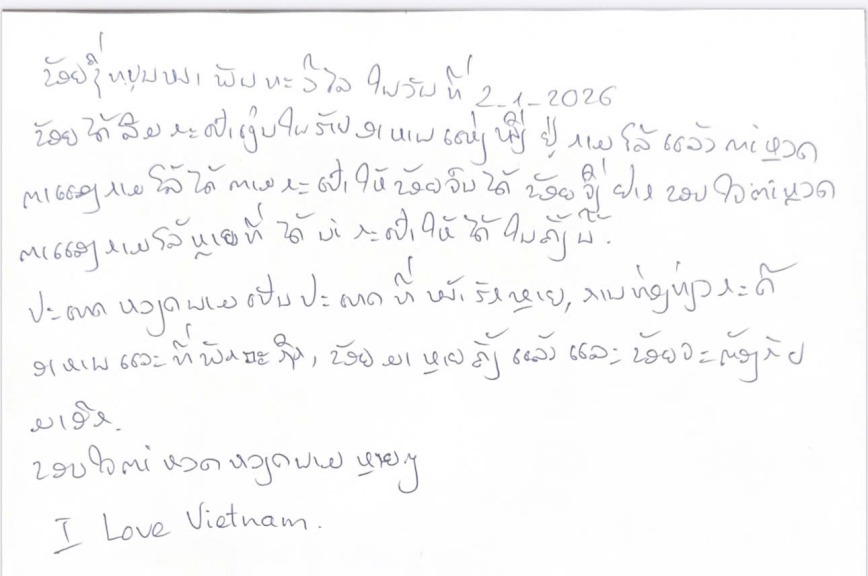 ຂ້ອຍຊື່ ພັນທະວິໄລ ໃນວັນທີ່ 2-1-2026
ຂ້ອຍໄດ້ລືມກະເປົາເງິນໃນຮ້ານອາຫານແຫ່ງໜຶ່ງ ຢູ່ ແລ້ວ ຕຳຫຼວດ
ໄດ້ຕາມກະເປົາໃຫ້ຂ້ອຍຈົນໄດ້ ຂ້ອຍຈຶ່ງຢາກຂອບໃຈຕຳຫຼວດ
ຫຼາຍທີ່ໄດ້ນຳກະເປົາໃຫ້ໄດ້ໃນຄັ້ງນີ້.
ປະເທດ ຫວຽດນາມ ເປັນປະເທດ ທີ່ ໜ້າຮັກຫຼາຍ, ການທ່ອງທ່ຽວກະດີ
ອາຫານ ແລະ ທີ່ພັກກະດີ, ຂ້ອຍ ມາ ຫຼາຍຄັ້ງ ແລ້ວ ແລະ ຂ້ອຍຈະຕ້ອງກັບ
ມາອີກ.
ຂອບໃຈຕຳຫຼວດ ຫວຽດນາມ ຫຼາຍໆ
I Love Vietnam.